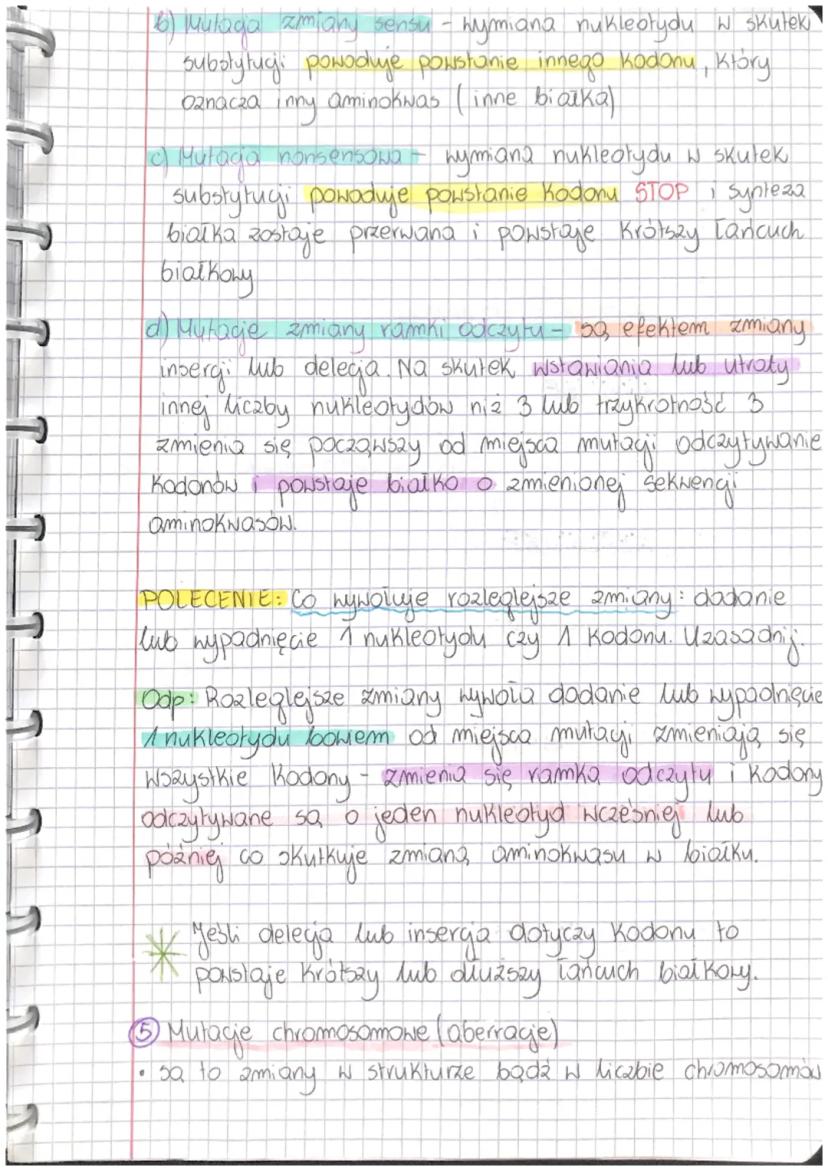 b) Mutacja zmiany sensu - wymiana nukleotydu w skutek
substytucji powoduje powstanie innego kodonu, który
oznacza inny aminokwas (inne białka)
c) Mutacja nonsensowa - wymiana nukleotydu w skutek
substytucji powoduje powstanie kodonu STOP i synteza
białka zostaje przerwana i powstaje krótszy łańcuch
białkowy
d) Mutacje zmiany ramki odczytu - są efektem zmiany
insercji lub delecja. Na skutek wstawiania lub utraty
innej liczby nukleotydów niż 3 lub trzykrotność 3
zmienia się począwszy od miejsca mutacji odczytywanie
kodonów i powstaje białko o zmienionej sekwencji
aminokwasów.
POLECENIE: Co wywołuje rozleglejsze zmiany: dodanie
lub wypadnięcie 1 nukleotydu czy 1 kodonu. Uzasadnij.
Odp: Rozleglejsze zmiany wywoła dodanie lub wypadnięcie
1 nukleotydu bowiem od miejsca mutacji zmieniają się
wszystkie kodony - zmienia się ramka odczytu i kodony
odczytywane są o jeden nukleotyd wcześniej lub
później co skutkuje zmianą aminokwasu w białku.
Jeśli delecja lub insercja dotyczy kodonu to
powstaje krótszy lub dłuższy łańcuch białkowy.
5 Mutacje chromosomowe (aberracje)
• są to zmiany w strukturze bądź w liczbie chromosomów